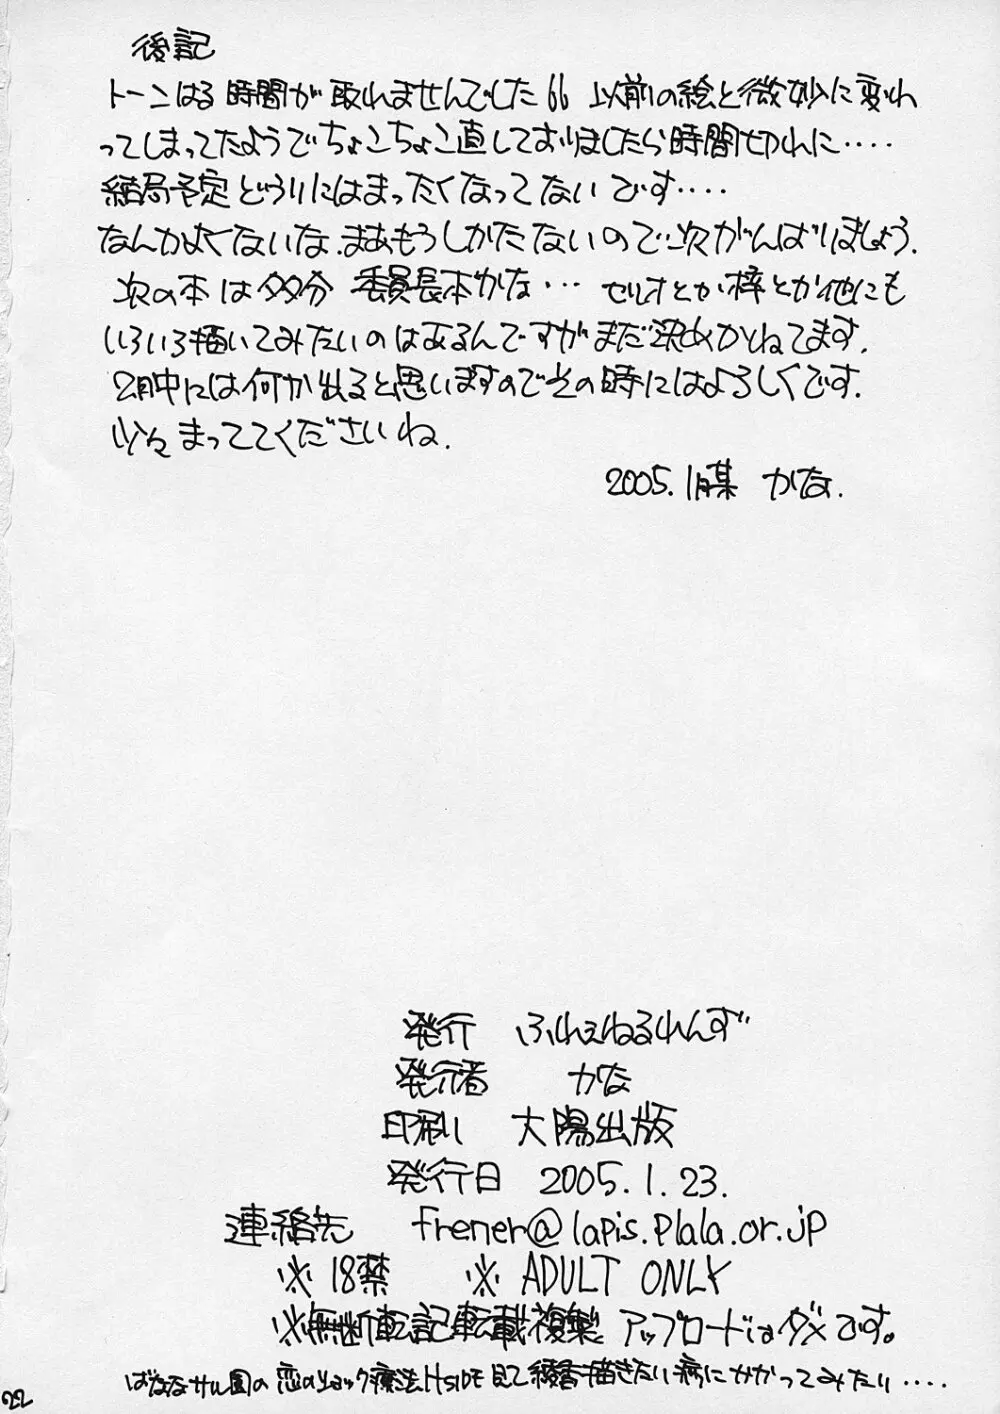 後記
トーンはる時間が取れませんでした 以前の絵と微妙に変わ
ってしまってたようでちょこちょこ直しておりましたら時間切れに‥‥
結局予定どうりにはまったくなってないです‥‥
なんかよくないな.まあもうしかたないので次がんばりましょう.
次の本は多分 委員長本かな‥‥ セリオとか梓とか他にも
いろいろ描いてみたいのはあるんですがまだ決めかねてます.
2月中には何か出ると思いますのでその時にはよろしくです.
少々まっててくださいね.
2005.1月某 かな.
発行 ふれぇねるれんず
発行者 かな
印刷 大陽出版
発行日 2005.1.23.
連絡先 frener@lapis.plala.or.jp
※18禁 ※ADULT ONLY
※無断転記転載複製 アップロードはダメです。
ばななサル園の恋のショック療法 見て綾香描きたい病にかかってみたり‥‥
22